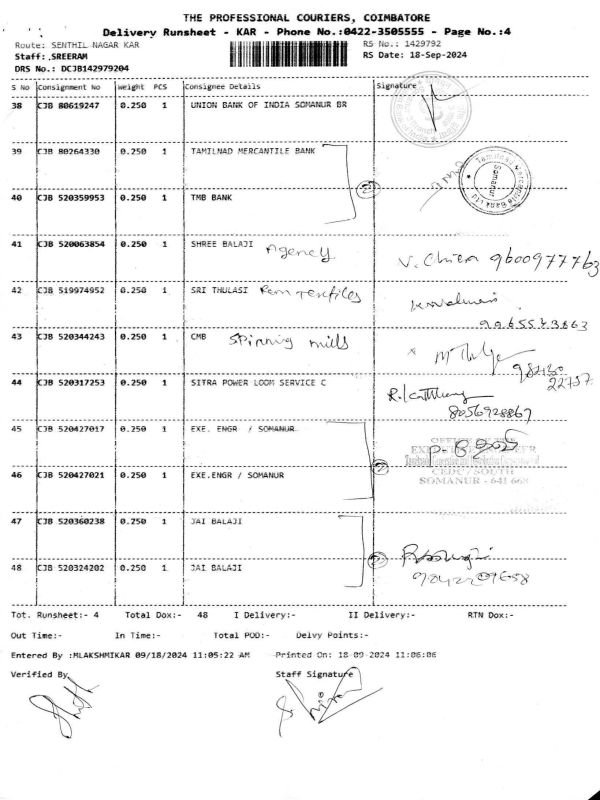 THE PROFESSIONAL COURIERS, COIMBATORE
Delivery Runsheet - KAR - Phone No.:0422-3505555 - Page No.:4
Route: SENTHIL NAGAR KAR RS No.: 1429792
Staff: ,SREERAM RS Date: 18-Sep-2024
DRS No.: DCJB142979204
S No Consignment No Weight PCS Consignee Details Signature
38 CJB 80619247 0.250 1 UNION BANK OF INDIA SOMANUR BR
39 CJB 80264330 0.250 1 TAMILNAD MERCANTILE BANK
Tamilnad Mercantile Bank Ltd Somanur
2
40 CJB 520359953 0.250 1 TMB BANK
41 CJB 520063854 0.250 1 SHREE BALAJI Agency V. Chitra 9600977763
42 CJB 519974952 0.250 1 SRI THULASI
9965533863
43 CJB 520344243 0.250 1 CMB Spinning mills
98430
22757
44 CJB 520317253 0.250 1 SITRA POWER LOOM SERVICE C
8056928867
45 CJB 520427017 0.250 1 EXE. ENGR / SOMANUR
OFFICE OF THE
CEDC/SOUTH
SOMANUR - 641 668
2
46 CJB 520427021 0.250 1 EXE.ENGR / SOMANUR
47 CJB 520360238 0.250 1 JAI BALAJI
2
48 CJB 520324202 0.250 1 JAI BALAJI
Tot. Runsheet:- 4 Total Dox:- 48 I Delivery:- II Delivery:- RTN Dox:-
Out Time:- In Time:- Total POD:- Delvy Points:-
Entered By :MLAKSHMIKAR 09/18/2024 11:05:22 AM Printed On: 18-09-2024 11:06:06
Verified By Staff Signature